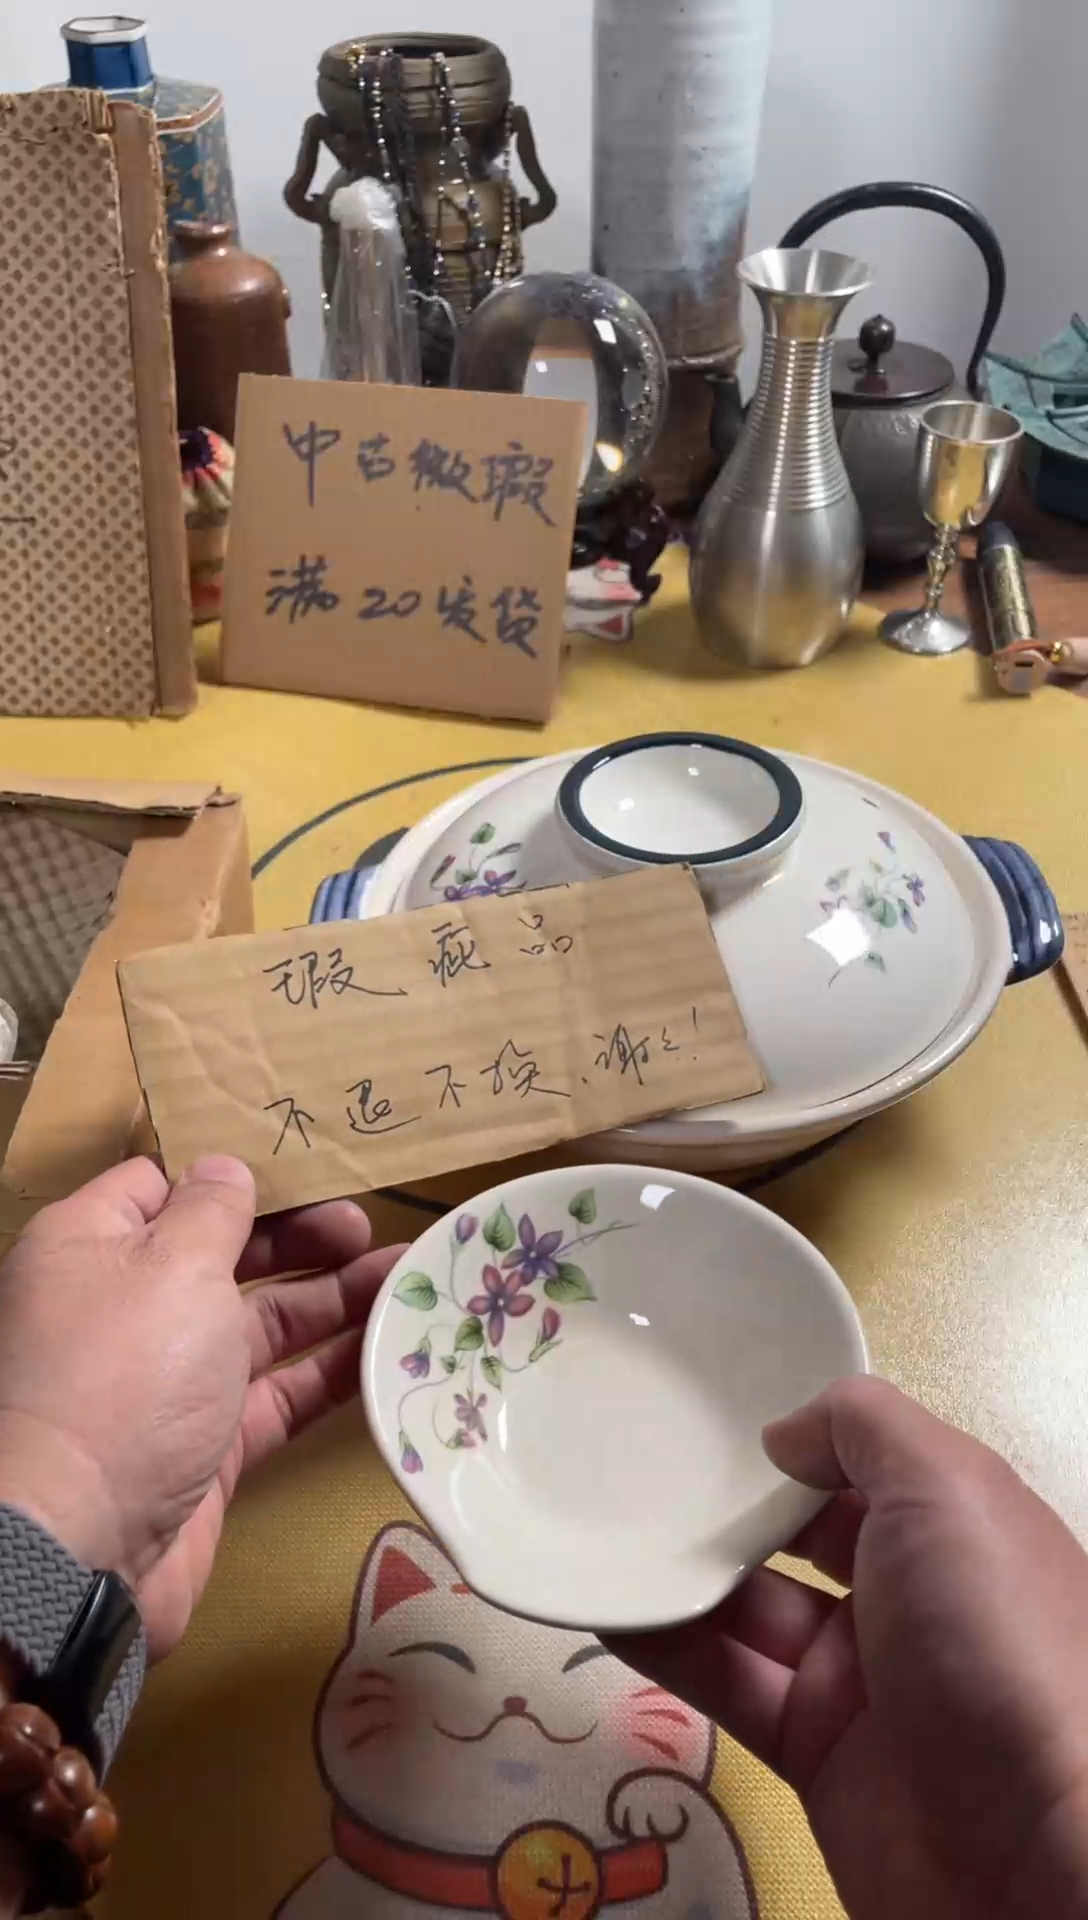 中古微瑕
满20发货
瑕疵品
不退不换、谢谢！